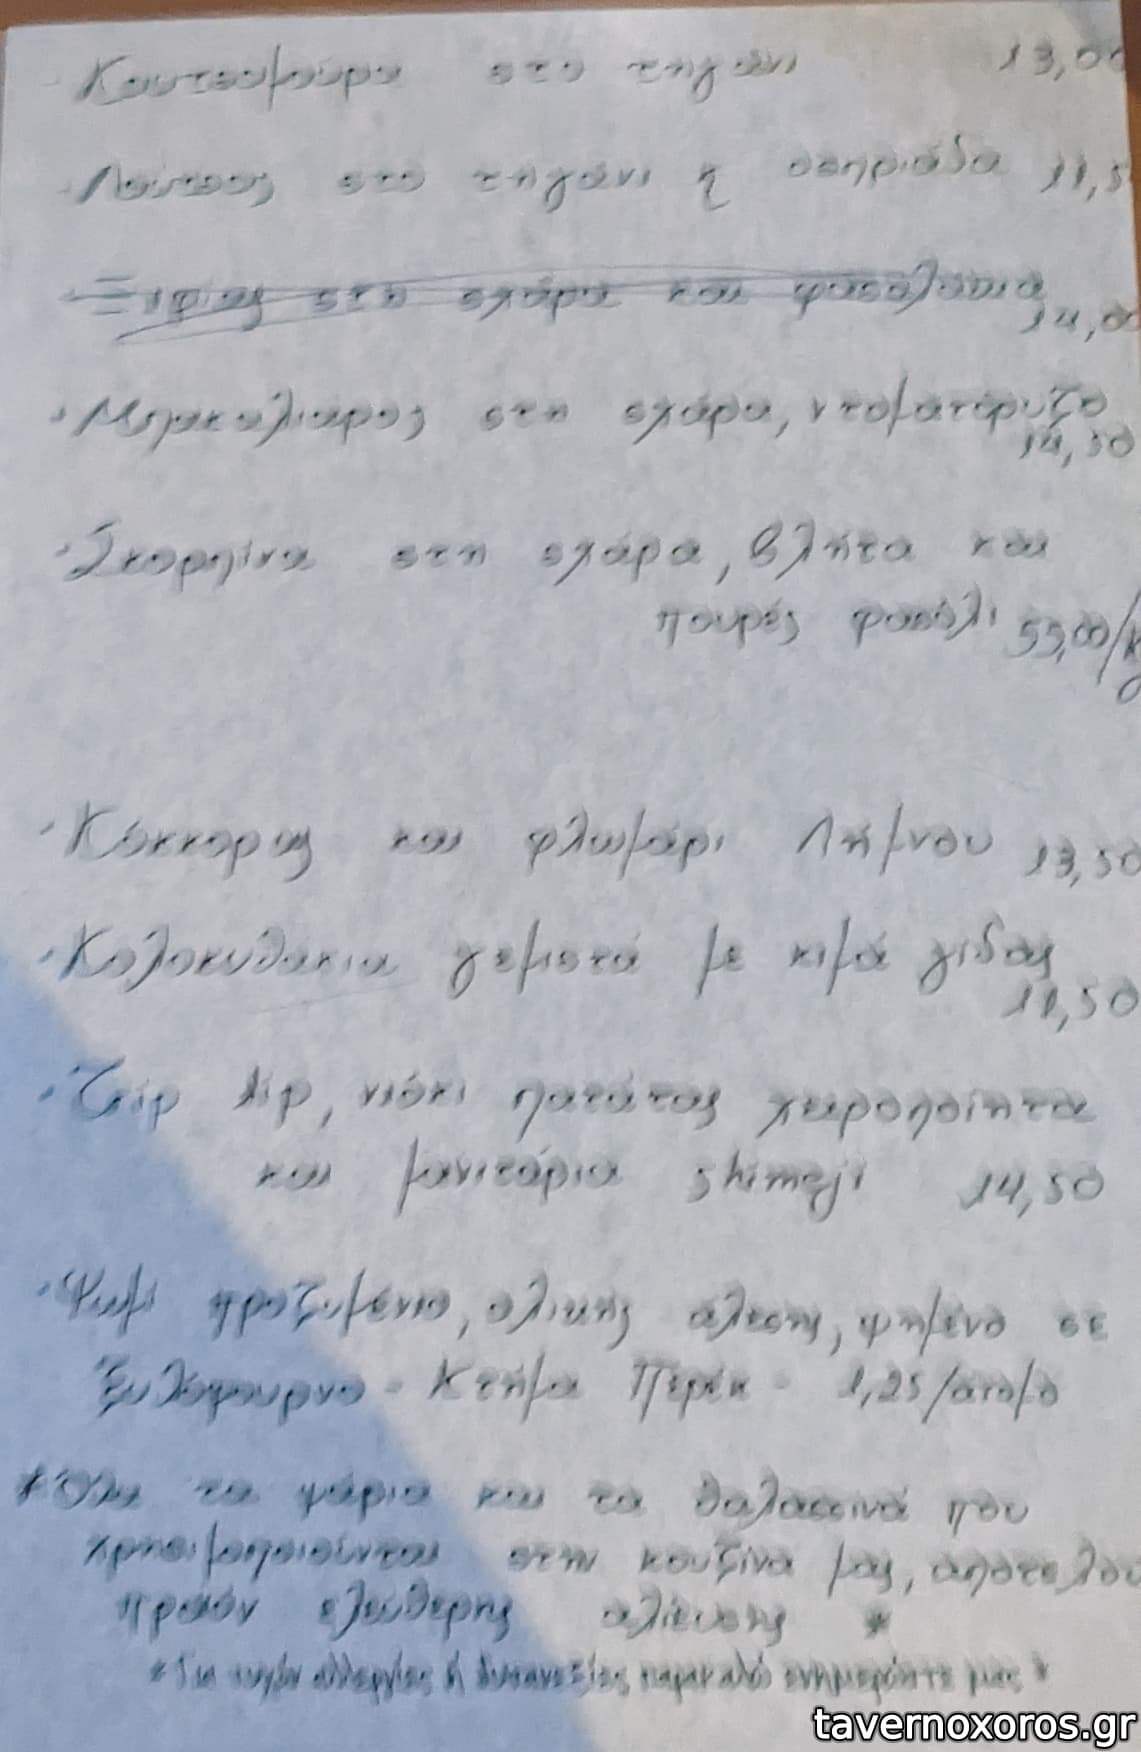 - Κουτσομούρα στο τηγάνι 13,00
- Λούτσος στο τηγάνι ή οσπριάδα 11,5
- Ξιφίας στη σχάρα και φασολάκια
14,00
- Μπακαλιάρος στη σχάρα, ντοματόρυζο
14,50
- Σκορπίνα στη σχάρα, βλήτα και
πουρές φασόλι 55,00/kg
- Κόκκορας και φλωμάρι Λήμνου 13,50
- Κολοκυθάκια γεμιστά με κιμά γίδας
11,50
- Τζιρ λιρ, νιόκι πατάτας χειροποίητα
και μανιτάρια shimeji 14,50
- Ψωμί προζυμένιο, ολικής άλεσης, ψημένο σε
ξυλόφουρνο - Κτήμα Περέκ - 1,25/άτομο
* Όλα τα ψάρια και τα θαλασσινά που
χρησιμοποιούνται στην κουζίνα μας, αποτελού
προϊόν ελεύθερης αλίευσης *
* Για τυχόν αλλεργίες ή δυσανεξίες παρακαλώ ενημερώστε μας *
tavernoxoros.gr